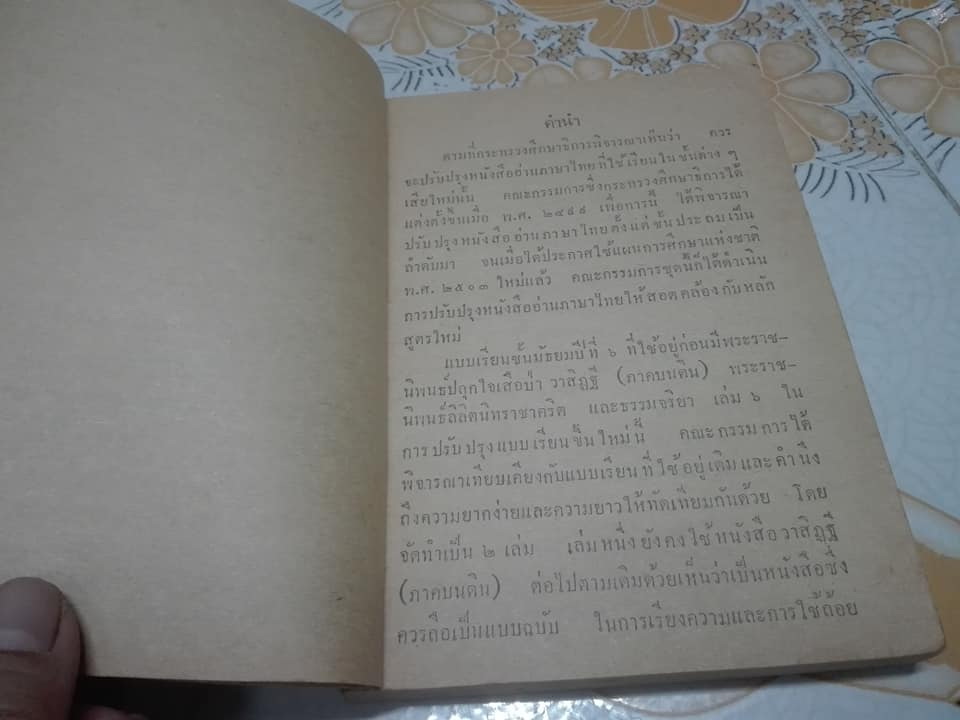 คำนำ
ตามที่กระทรวงศึกษาธิการพิจารณาเห็นว่า ควร
จะปรับปรุงหนังสืออ่านภาษาไทยที่ใช้เรียนในชั้นต่าง ๆ
เสียใหม่นั้น คณะกรรมการซึ่งกระทรวงศึกษาธิการได้
แต่งตั้งขึ้นเมื่อ พ.ศ. ๒๔๙๙ เพื่อการนี้ ได้พิจารณา
ปรับปรุงหนังสืออ่านภาษาไทยตั้งแต่ชั้นประถมเป็น
ลำดับมา จนเมื่อได้ประกาศใช้แผนการศึกษาแห่งชาติ
พ.ศ. ๒๕๐๓ ใหม่แล้ว คณะกรรมการชุดนี้ก็ได้ดำเนิน
การปรับปรุงหนังสืออ่านภาษาไทยให้สอดคล้องกับหลัก
สูตรใหม่
แบบเรียนชั้นมัธยมปีที่ ๖ ที่ใช้อยู่ก่อนมีพระราช–
นิพนธ์ปลุกใจเสือป่า วาสิฏฐี (ภาคบนดิน) พระราช–
นิพนธ์ลิลิตนิทราชาคริต และธรรมจริยา เล่ม ๖ ใน
การปรับปรุงแบบเรียนขึ้นใหม่นี้ คณะกรรมการได้
พิจารณาเทียบเคียงกับแบบเรียนที่ใช้อยู่เดิมและคำนึง
ถึงความยากง่ายและความยาวให้ทัดเทียมกันด้วย โดย
จัดทำเป็น ๒ เล่ม เล่มหนึ่งยังคงใช้หนังสือวาสิฏฐี
(ภาคบนดิน) ต่อไปตามเดิมด้วยเห็นว่าเป็นหนังสือซึ่ง
ควรถือเป็นแบบฉบับ ในการเรียงความและการใช้ถ้อย